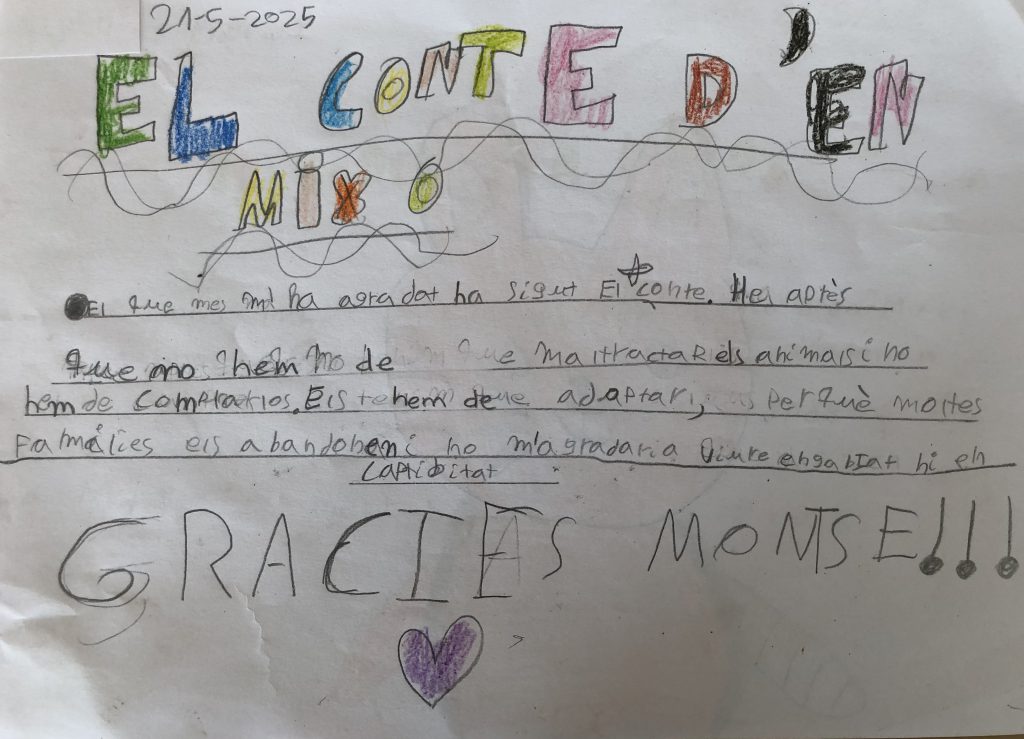 21-5-2025
EL CONTE D'EN
MIX O
El que mes ha agradat ha sigut El conte. He après
que no hem de maltractar els animals i no
hem de comprarlos. Els hem de adaptar, perquè moltes
famílies els abandonen i no m'agradaria viure engabiat ni en
captibitat
GRACIES MONTSE!!!